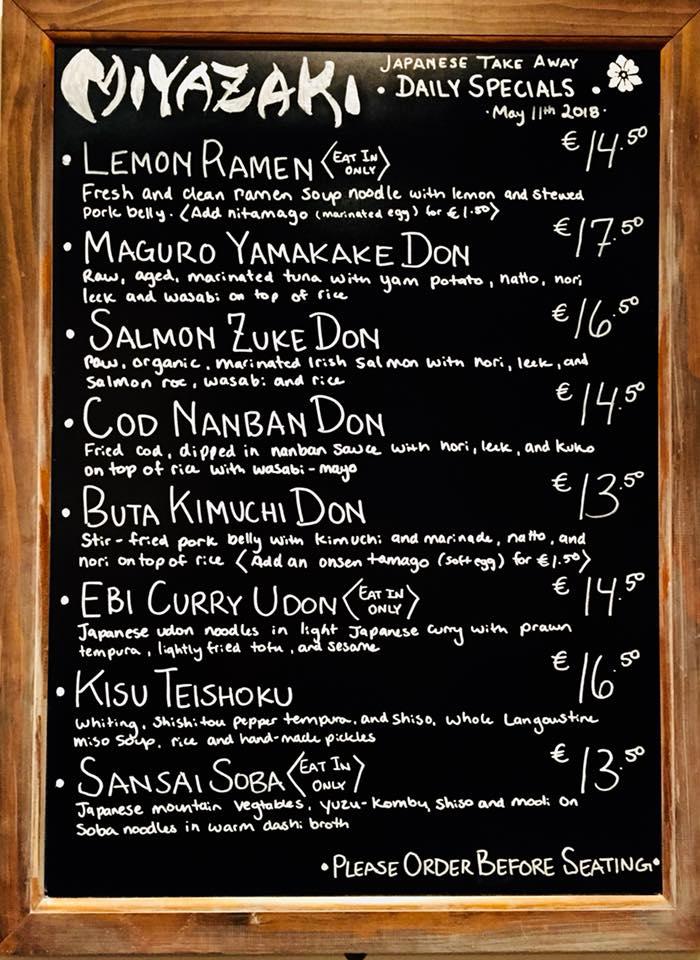 MIYAZAKI
JAPANESE TAKE AWAY
• DAILY SPECIALS •
· May 11th 2018 ·
• LEMON RAMEN <EAT IN ONLY> €14.50
Fresh and clean ramen soup noodle with lemon and stewed
pork belly. <Add nitamago (marinated egg) for €1.50>
• MAGURO YAMAKAKE DON €17.50
Raw, aged, marinated tuna with yam potato, natto, nori,
leek and wasabi on top of rice
• SALMON ZUKE DON €16.50
Raw, organic, marinated Irish Salmon with nori, leek, and
Salmon roe, wasabi and rice
• COD NANBAN DON €14.50
Fried cod, dipped in nanban sauce with nori, leek, and kuko
on top of rice with wasabi-mayo
• BUTA KIMUCHI DON €13.50
Stir-fried pork belly with kimuchi and marinade, natto, and
nori on top of rice <Add an onsen tamago (soft egg) for €1.50>
• EBI CURRY UDON <EAT IN ONLY> €14.50
Japanese udon noodles in light Japanese curry with prawn
tempura, lightly fried tofu, and sesame
• KISU TEISHOKU €16.50
Whiting, Shishitou pepper tempura, and shiso, whole Langoustine
miso soup, rice and hand-made pickles
• SANSAI SOBA <EAT IN ONLY> €13.50
Japanese mountain vegtables, yuzu-kombu, shiso and mooli on
Soba noodles in warm dashi broth
• PLEASE ORDER BEFORE SEATING •